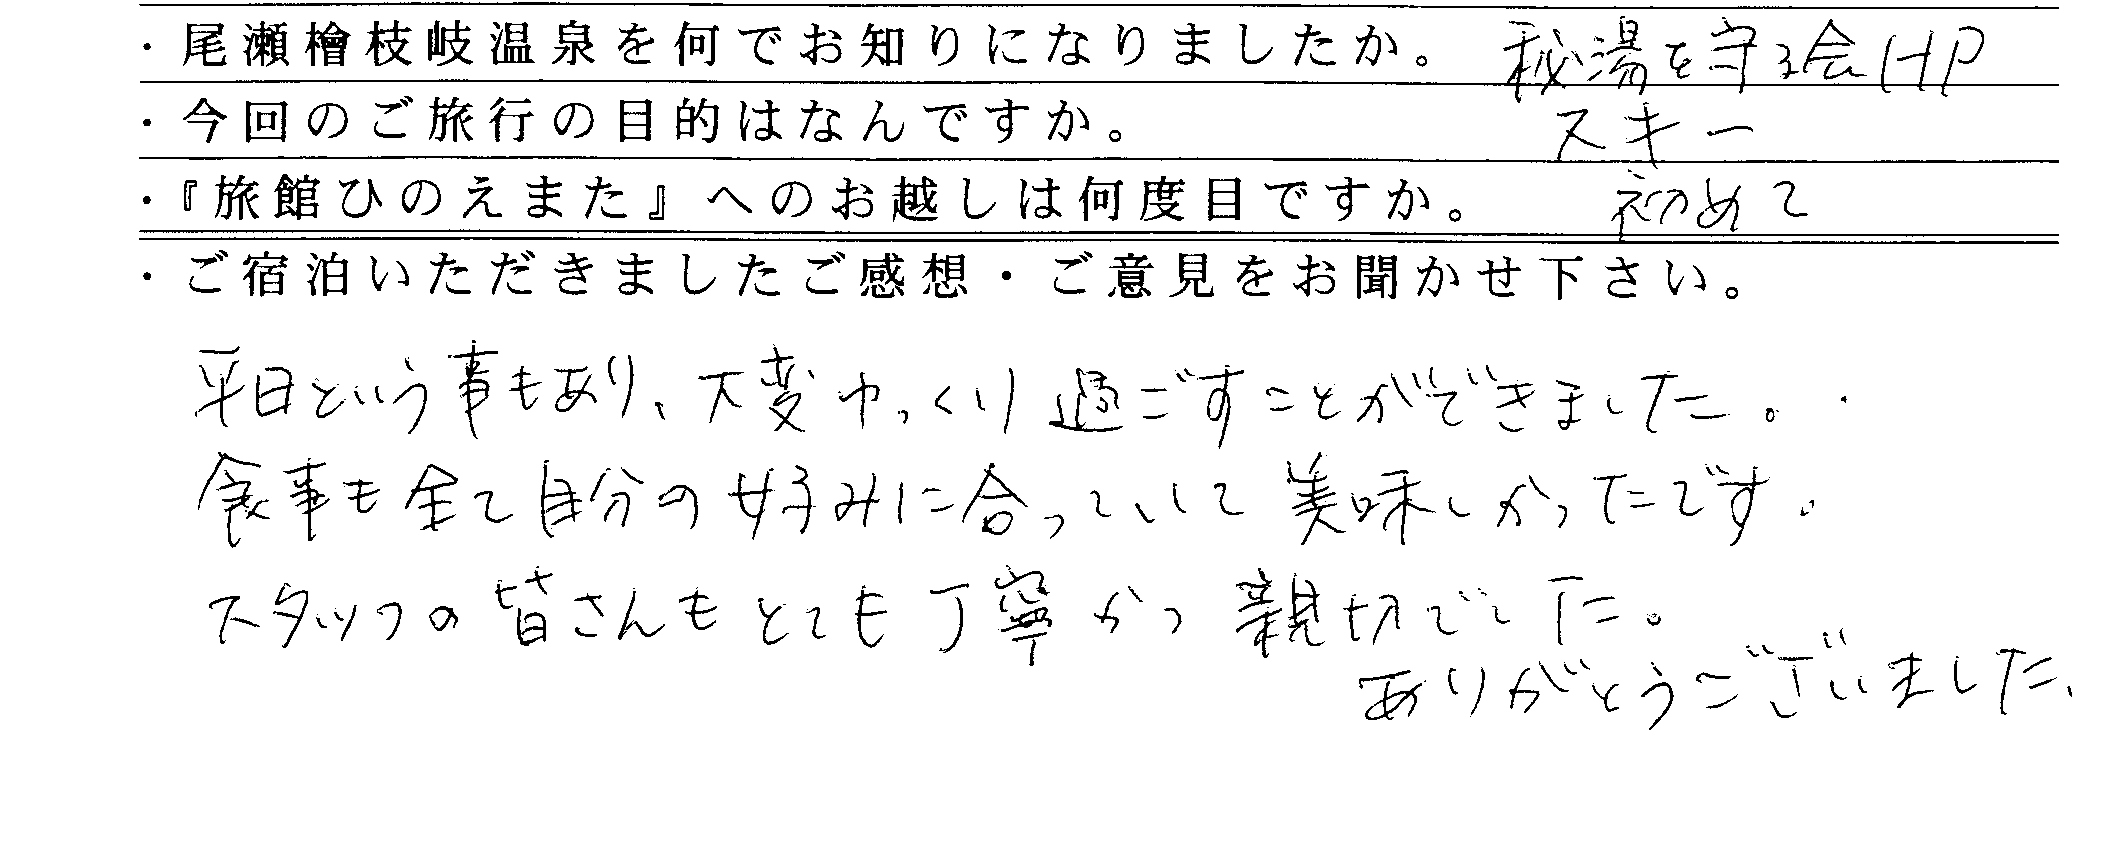 ・尾瀬檜枝岐温泉を何でお知りになりましたか。 秘湯を守る会HP
・今回のご旅行の目的はなんですか。 スキー
・『旅館ひのえまた』へのお越しは何度目ですか。 初めて
・ご宿泊いただきましたご感想・ご意見をお聞かせ下さい。
平日という事もあり、大変ゆっくり過ごすことができました。
食事も全て自分の好みに合っていて美味しかったです。
スタッフの皆さんもとても丁寧かつ親切でした。
ありがとうございました、